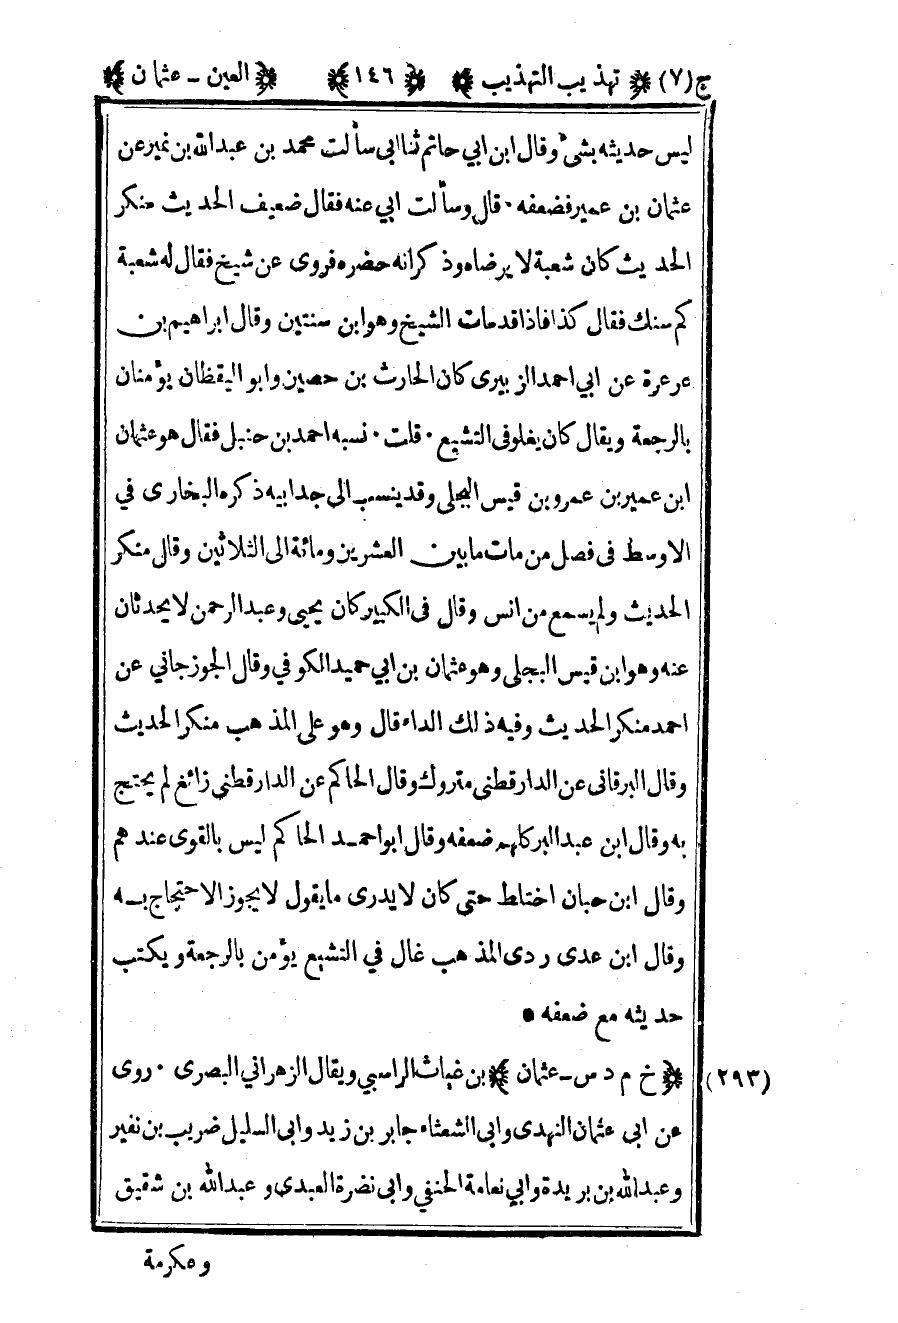 ج(٧) ﴿ تهذيب التهذيب ﴾ ﴿ ١٤٦ ﴾ ﴿ العين - عثمان ﴾
ليس حديثه بشئ وقال ابن ابي حاتم ثنا ابي سألت محمد بن عبد الله بن نمير عن
عثمان بن عمير فضعفه · قال وسألت ابي عنه فقال ضعيف الحديث منكر
الحديث كان شعبة لا يرضاه وذكر انه حضره فروى عن شيخ فقال له شعبة
كم سنك فقال كذا فاذا قد مات الشيخ وهو ابن سنتين وقال ابراهيم بن
عرعرة عن ابي احمد الزبيرى كان الحارث بن حصين وابو اليقظان يؤمنان
بالرجعة ويقال كان يغلو فى التشيع · قلت · نسبه احمد بن حنبل فقال هو عثمان
ابن عمير بن عمرو بن قيس البجلى وقد ينسب الى جد ابيه ذكره البخارى في
الاوسط فى فصل من مات ما بين العشرين ومائة الى الثلاثين وقال منكر
الحديث ولم يسمع من انس وقال فى الكبير كان يحيى وعبد الرحمن لا يحدثان
عنه وهو ابن قيس البجلي وهو عثمان بن ابي حميد الكوفي وقال الجوزجاني عن
احمد منكر الحديث وفيه ذلك الداء قال وهو على المذهب منكر الحديث
وقال البرقانى عن الدارقطنى متروك وقال الحاكم عن الدارقطني زائغ لم يحتج
به وقال ابن عبد البر كلهم ضعفه وقال ابو احمد الحاكم ليس بالقوى عندهم
وقال ابن حبان اختلط حتى كان لا يدرى ما يقول لا يجوز الاحتجاج به
وقال ابن عدى ردى المذهب غال في التشيع يؤمن بالرجعة ويكتب
حديثه مع ضعفه •
(٢٩٣) ﴿ خ م د س - عثمان ﴾ بن غياث الراسبي ويقال الزهراني البصرى · روى
عن ابى عثمان النهدى وابى الشعثاء جابر بن زيد وابى السليل ضريب بن نفير
وعبد الله بن بريدة وابي نعامة الحنفي وابى نضرة العبدى و عبد الله بن شقيق
وعكرمة